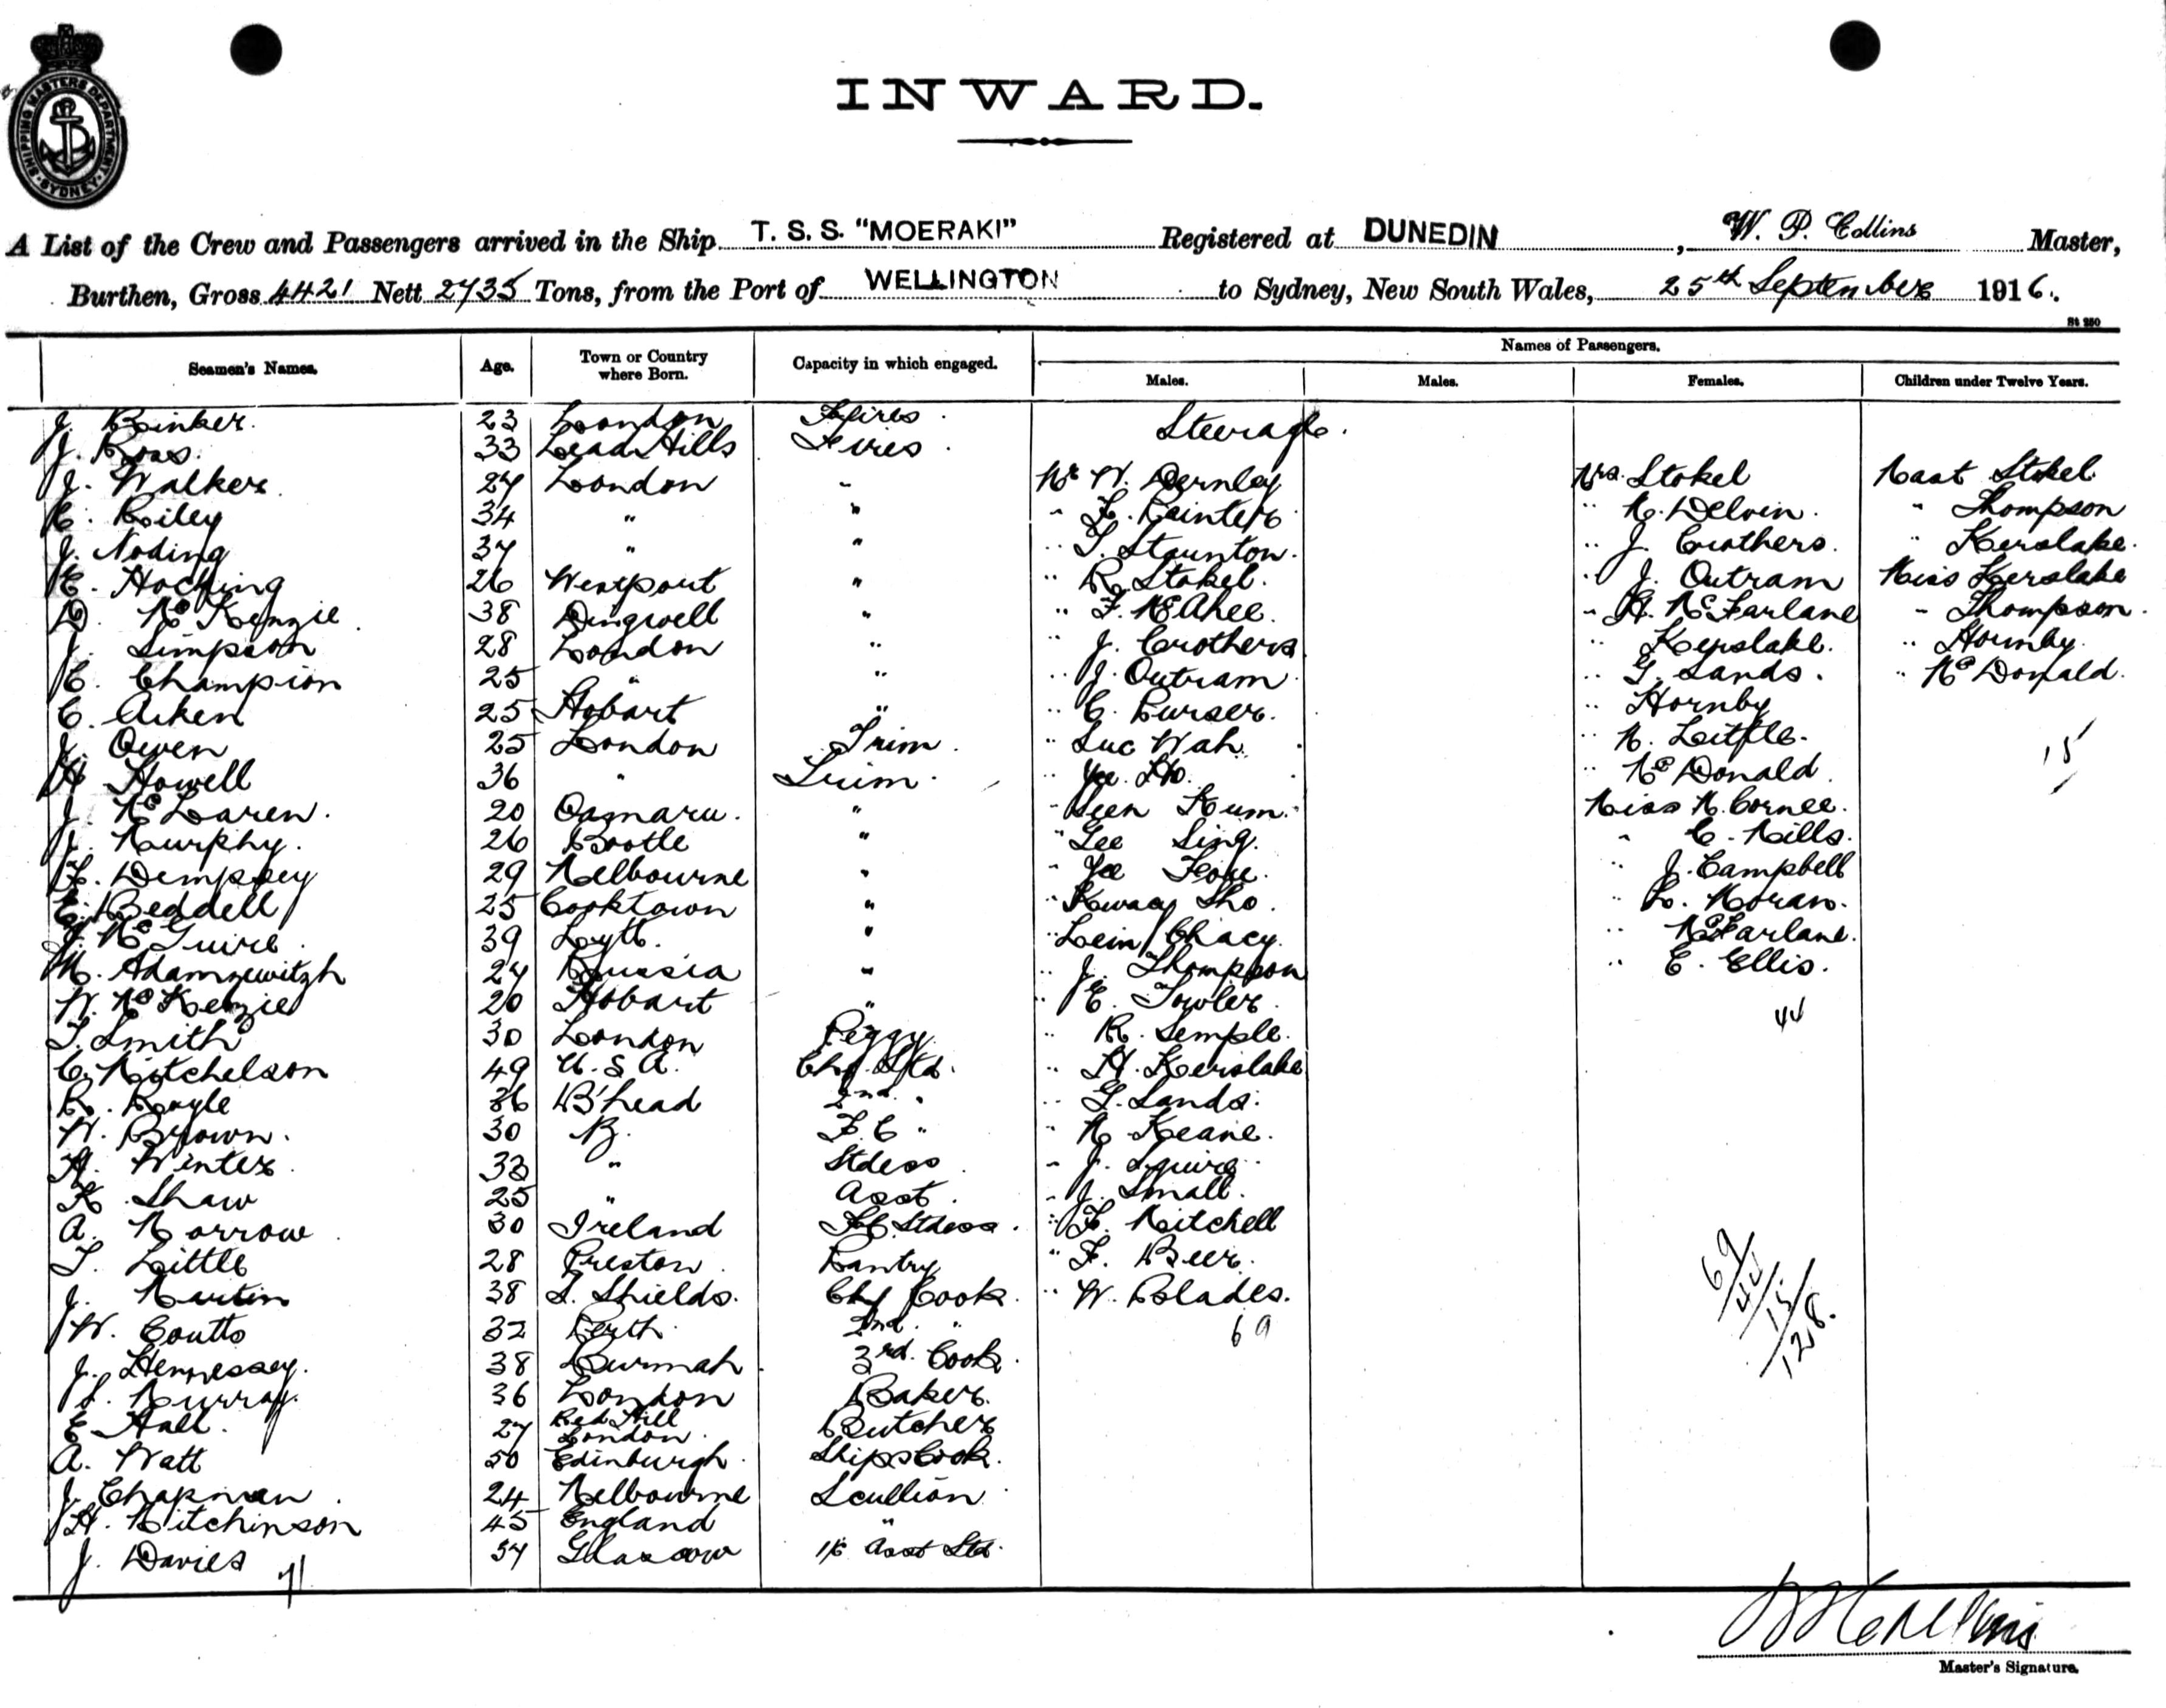 SHIPPING MASTERS DEPARTMENT
SYDNEY
INWARD.
A List of the Crew and Passengers arrived in the Ship T. S. S. "MOERAKI" Registered at DUNEDIN, W. P. Collins Master,
Burthen, Gross 4421 Nett 2735 Tons, from the Port of WELLINGTON to Sydney, New South Wales, 25th September 1916.
St 250
Names of Passengers.
Seamen's Names. Age. Town or Country where Born. Capacity in which engaged. Males. Males. Females. Children under Twelve Years.
J. Binker. 23 London Steerage.
J. Ross. 33 Lead Hills Fires
J. Walker. 27 London " Mr W. Dernley Mrs. Stokel Mast Stokel
C. Riley 34 " " " F. Painter " M. Delvin. " Thompson
J. Noding 37 " " " T. Staunton. " J. Crothers. " Kerslake.
E. Hocking 26 Westport " " R. Stokel. " J. Outram Miss Kerslake
D. McKenzie 38 Dingwell " " F. McAhee. " H. McFarlane " Thompson.
J. Simpson 28 London " " J. Crothers " Kerslake. " Hornby
C. Champion 25 " " " J. Outram " G. Sands. " McDonald.
C. Aiken 25 Hobart " " C. Purser. " Hornby
J. Owen 25 London Trim. " Suc Wah. " M. Little. 15
H. Howell 36 " Trim. " Yee " McDonald.
J. McLaren. 20 Oamaru. " " Kum. Miss M. Cornee.
J. Murphy. 26 Bootle " " Lee Sing. " C. Mills.
F. Dempsey 29 Melbourne " " Yee " J. Campbell
E. Beddell 25 Cooktown " " Sho. " L. Moran.
J. McGuire. 39 Lytt. " " Chacy. " McFarlane.
M. Adamzewitzh 27 Russia " " J. Thompson " E. Ellis.
W. McKenzie 20 Hobart " " E. Fowler. 44
T. Smith 30 London Peggy. " R. Semple.
C. Mitchelson 49 U. S. A. Chf. Std. " H. Kerslake
R. Royle 36 B'head 2nd " " G. Sands.
W. Brown. 30 N.Z. F. C " " M Keane.
A. Winter. 33 " Stdess " J. Squire
K. Shaw 25 " Asst. " J. Small.
A. Morrow 30 Ireland F.C. Stdess. " F. Mitchell
T. Little 28 Preston. Pantry " F. Beer.
J. Martin 38 S. Shields. Chf Cook. " W. Blades. 69/44/15/128.
W. Coutts 32 Perth. 2nd. " 69
J. Hennessey. 38 Burmah. 3rd. Cook.
S. Murray. 36 London Baker.
E Hall. 27 Red Hill London. Butcher
A. Watt 50 Edinburgh. Ships Cook.
J. Chapman. 24 Melbourne Scullion
H. Mitchinson 45 England "
J. Davies 37 Glasgow Asst Std.
71
Master's Signature.